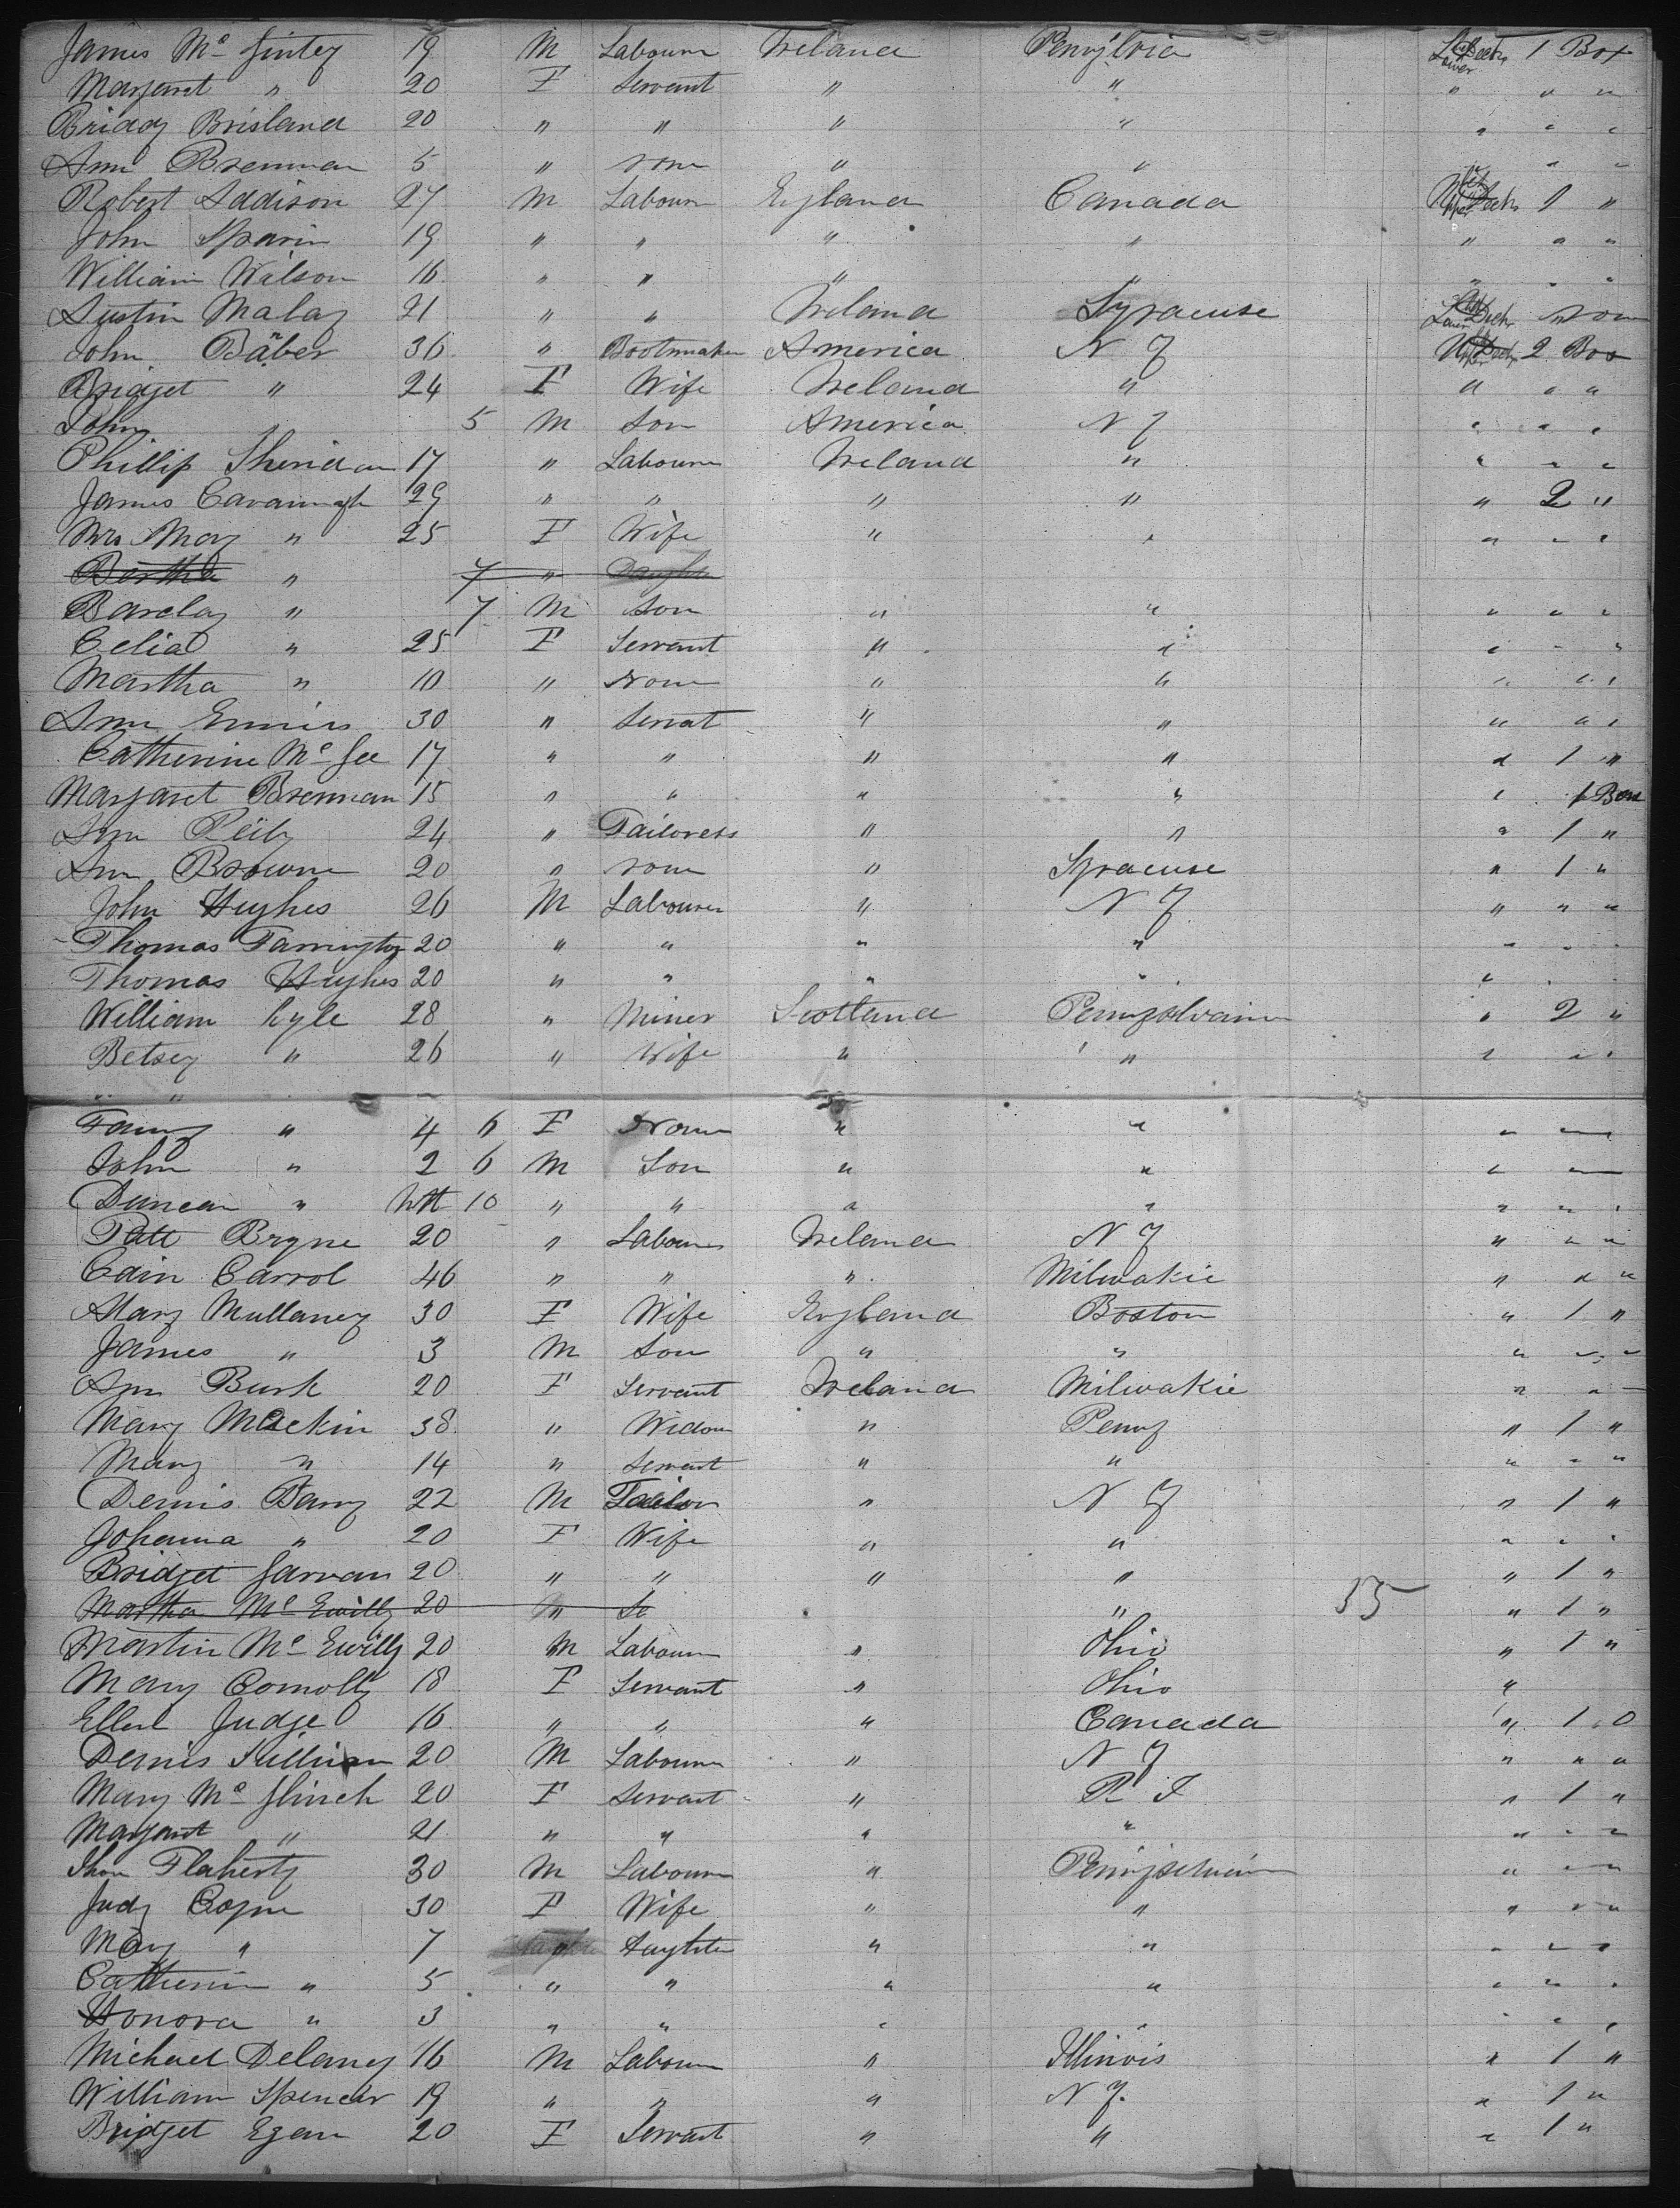 James Mc Ginley 19 M Labourer Ireland Penvylvia Lower Deck 1 Box
Margaret " 20 F Servant " " " " "
Briddy Brisland 20 " " " " " " "
Ann Brennan 5 " none " " " "
Robert Addison 27 M Labourer England Canada Upper Deck 1 "
John Sparin 19 " " " " " " "
William Wilson 16 " " " " " " "
Austin Malay 21 " " Ireland Syracuse Lower Deck none
John Baber 36 " Bootmaker America N Y Upper Deck 2 Box
Bridget " 24 F Wife Ireland " " " "
John 5 M Son America N Y " " "
Phillip Sheridan 17 " Labourer Ireland " " " "
James Cavannagh 29 " " " " " 2 "
Mrs Mary " 25 F Wife " " " " "
Bertha " 7 " Daughter
Barclay " 7 M Son " " " " "
Celia " 25 F Servant " " " " "
Martha " 10 " None " " " " "
Ann Ennis 30 " Servat " " " " "
Catherine Mc Gee 17 " " " " " 1 "
Margaret Brennan 15 " " " " " 1 Box
Ann Reily 24 " Tailoress " " " 1 "
Ann Browne 20 " none " Syracuse " 1 "
John Hughes 26 M Labourer " N Y " " "
Thomas Farrington 20 " " " " " " "
Thomas Hughes 20 " " " " " " "
William Lyle 28 " Miner Scotland Pennysolvainia " 2 "
Betsey " 26 " Wife " " " " "
" "
Fanny " 4 6 F None " " " "
John " 2 6 M Son " " " "
Duncan " Inft 10 " " " " " " "
Patt Bryne 20 " Labourer Ireland N Y " " "
Edin Carrol 46 " " " Milwakie " " "
Mary Mullaney 30 F Wife England Boston " 1 "
James " 3 M Son " " " " "
Ann Burk 20 F Servant Ireland Milwakie " "
Mary Mackin 38 " Widow " Penny " 1 "
Mary " 14 " Servant " " " " "
Dennis Barry 22 M Tailor " N Y " 1 "
Johanna " 20 F Wife " " " " "
Bridget Garvan 20 " " " " " 1 "
Martha Mc Ewilly 20 " Se " 35 " 1 "
Martin Mc Ewilly 20 M Labourer " Ohio " 1 "
Mary Connolly 18 F Servant " Ohio "
Ellen Judge 16 " " " Canada " 1 0
Dennis Sullivan 20 M Labourer " N Y " " "
Mary Mc Glinch 20 F Servant " R I " 1 "
Margaret " 21 " " " " " " "
Thom Flaherty 30 M Labourer " " " "
Judy Coyne 30 F Wife " " " " "
Mary " 7 " Daughter " " " " "
Catherine " 5 " " " " " " "
Honora " 3 " " " " " " "
Michael Delaney 16 M Labourer " Illinois " 1 "
William Spencer 19 " " " N Y. " 1 "
Bridget Egan 20 F Servant " " " 1 "